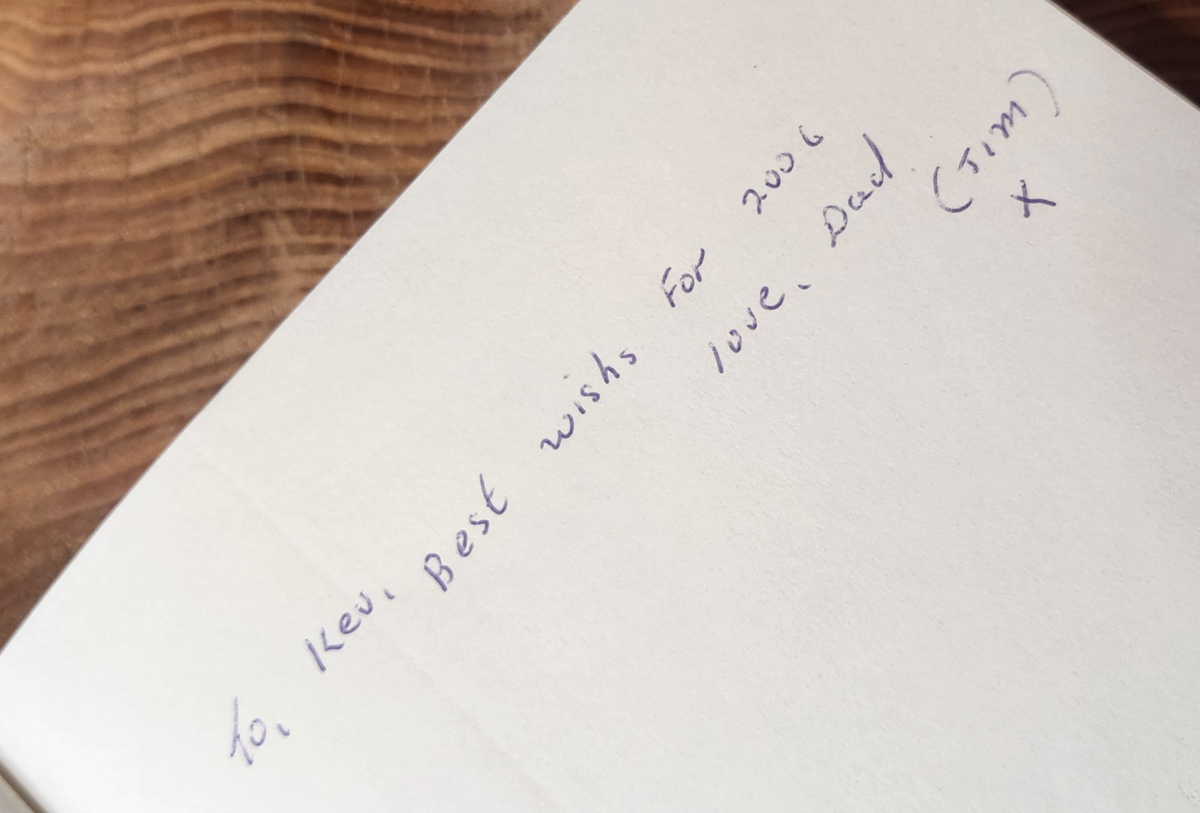 to, Kev, Best wishs For 2006
love, Dad (Jim)
X